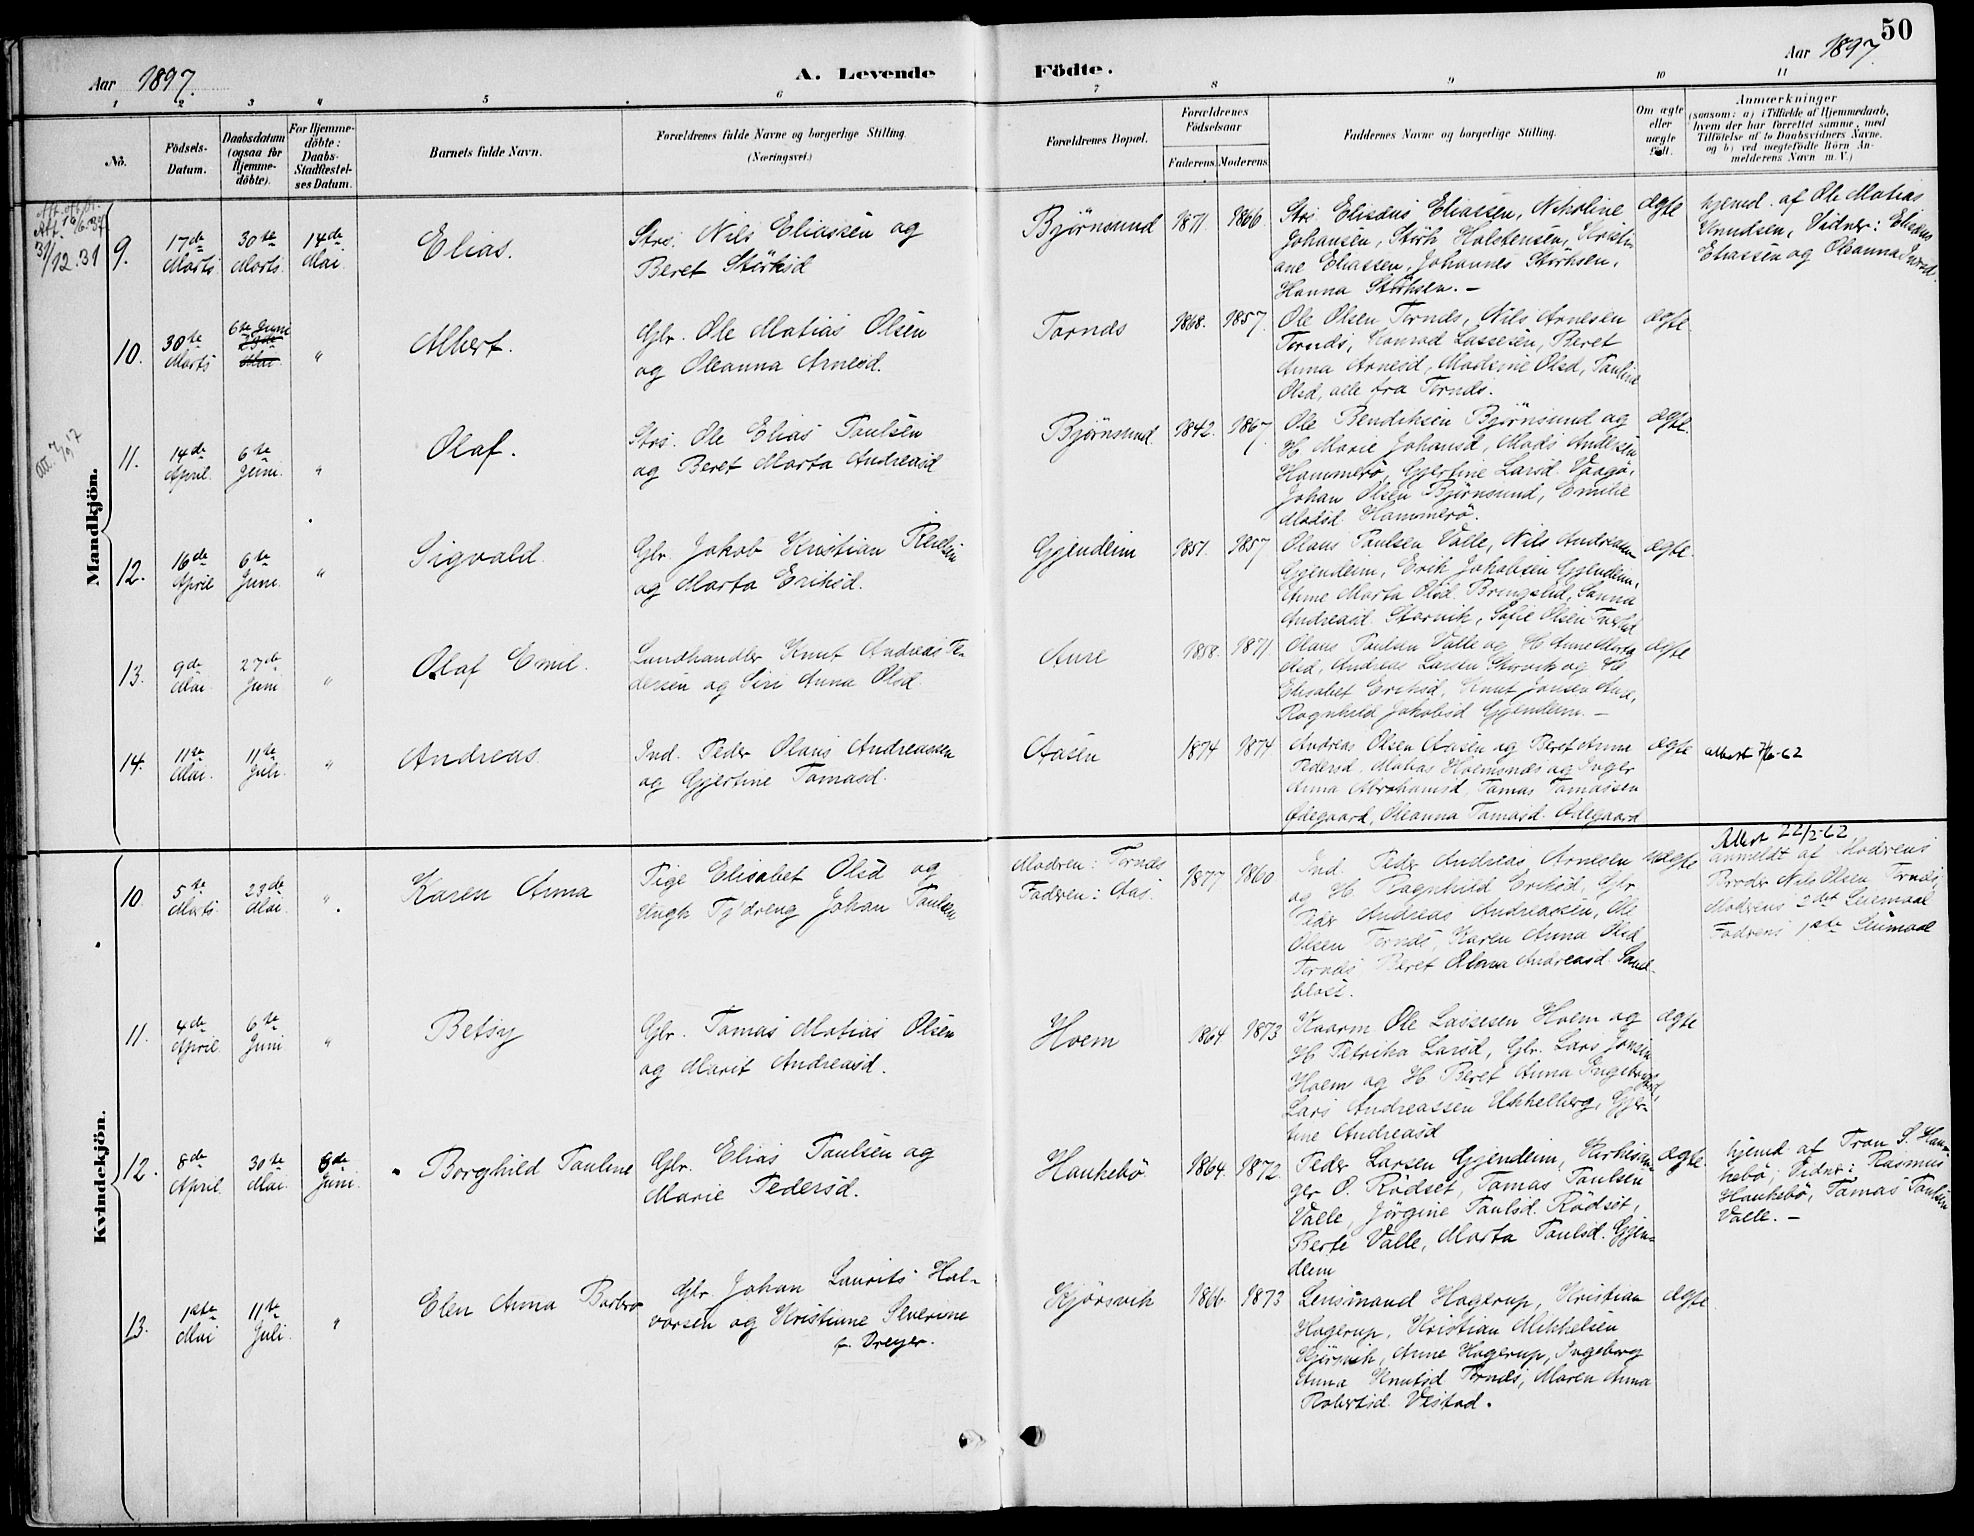 50
Aar 1897.
A. Levende
Födte.
Aar 1897.
1 2 3 4 5 6 7 8 9 10 11
No.
Födsels-
Datum.
Daabsdatum
(ogsaa for
Hjemme-
döbte).
For Hjemme-
döbte:
Daabs-
Stadfæstel-
ses Datum.
Barnets fulde Navn.
Forældrenes fulde Navne og borgerlige Stilling.
(Næringsvei.)
Forældrenes Bopæl.
Forældrenes
Födselsaar
Faderens. Moderens.
Faddernes Navne og borgerlige Stilling.
Om ægte
eller
uægte
født.
Anmærkninger
(saasom: a) i Tilfælde af Hjemmedaab,
hvem der har forrettet samme, med
Tilföielse af to Daabsvidners Navne,
og b) ved uægtefödte Börn An-
melderens Navn m. V.)
Mandkjön.
31/12.31
9.
17de
Marts
30te
Marts.
14de
Mai
Elias.
Strs. Nils Eliassen og
Beret Störksd
Björnsund
1871. 1866.
Strs. Elisæus Eliassen, Nikoline
Johansen, Störk Halstensen, Kristi-
ane Eliassen, Johannes Störksen,
Hanna Störksen. –
ægte
hjemd. af Ole Matias
Knudsen, Vidner: Elisæus
Eliassen og Oleanna
10.
30te
Marts
6te Juni
23de
Mai
"
Albert.
Glr. Ole Matias Olsen
og Oleanna Arnesd.
Tornæs
1868. 1857.
Ole Olsen Tornæs, Nils Arnesen
Tornæs, Konrad Lassesen, Beret
Anna Arnesd, Olsd, Pauline
Olsd, alle fra Tornæs.
ægte
11.
14de
April.
6te
Juni.
"
Olaf.
Strs. Ole Elias Paulsen
og Beret Marta Andreasd
Björnsund.
1842. 1867.
Ole Bendiksen Björnsund og
H. Marie Johansd, Mads Andersen
Hammerö, Gjertine Larsd. Vaagö,
Johan Olsen Björnsund, Emilie
Madsd. Hammerö.
ægte.
12.
16de
April
6te
Juni.
"
Sigvald.
Glr. Jakob Kristian
og Marta Eriksd.
Gjendem
1851. 1857
Olaus Paulsen Valle, Nils Andreassen
Gjendem, Erik Jakobsen Gjendem,
Anne Marta Olsd. Bringslid, Sanna
Andreasd. Storvik, Sofie Olsen
ægte.
13.
9de
Mai.
27de
Juni
"
Olaf Emil.
Landhandler Knut Andreas Pe-
dersen og Siri Anna Olsd.
Aure
1858. 1871
Olaus Paulsen Valle og H. Anne Marta
Olsd, Andreas Larsen Storvik og H.
Elisabet Eriksd, Knut Jonsen Aure,
Ragnhild Jakobsd Gjendem. –
ægte
14.
11te
Mai.
11te
Juli.
"
Andreas.
Ind. Peder Olaus Andreassen
og Gjertine Tomasd.
Aasen
1874 1874
Andreas Olsen Aasen og Beret Anne
Pedersd, Matias Hoemsnæs og Inger
Anna Abrahamsd, Tomas Tomassen
Ødegaard, Oleanna Tomasd. Ødegaard
ægte
Kvindekjön.
10.
5te
Marts
23de
Mai.
"
Karen Anna
Pige Elisabet Olsd og
Ungk. Tj'dreng Johan Paulsen
Modren: Tornæs
Fadren: Aas.
1877 1860
Ind. Peder Andreas Arnesen
og H. Ragnhild Eriksd, Glr.
Peder Andreas Andreassen, Ole
Olsen Tornæs, Karen Anna Olsd
Tornæs, Beret Olava Andreasd. Sand-
blost.
uægte
22/2-62
anmeldt af Modrens
Broder Nils Olsen Tornæs,
Modrens 2det Leiermaal
Fadrens 1ste Leiermaal
11.
4de
April.
6te
Juni
"
Betsy
Glr. Tomas Matias Olsen
og Marit Andreasd.
Hoem
1864. 1873
Kaarm. Ole Lassesen Hoem og
H. Petrika Larsd, Glr. Lars Jonsen
Hoem og H. Beret Anna Ingebrigtsd,
Lars Andreassen Ukkelberg, Gjer-
tine Andreasd
ægte
12.
8de
April.
30te
Mai.
8de
Juni.
Borghild Pauline
Glr. Elias Paulsen og
Marie Pedersd.
Haukebö.
1864. 1872.
Peder Larsen Gjendem, Kirkesan-
ger O. Rödset, Tomas Paulsen
Valle, Jörgine Paulsd. Rödset,
Berte Valle, Marta Paulsd. Gjen-
dem
ægte.
hjemd af Tron S. Hau-
kebö, Vidner: Rasmus
Haukebö, Tomas Paulsen
Valle. –
13.
1ste
Mai
11te
Juli.
"
Elen Anna Barbro
Glr. Johan Laurits Hal-
vorsen og Kristiane Severine
f. Dreyer.
Kjörsvik
1866. 1873
Lensmand Hagerup, Kristian
Hagerup, Kristian Mikkelsen
Kjörsvik, Anne Hagerup, Ingeborg
Anna Knutsd Tornæs, Maren Anna
Robertsd. Vestad.
ægte.